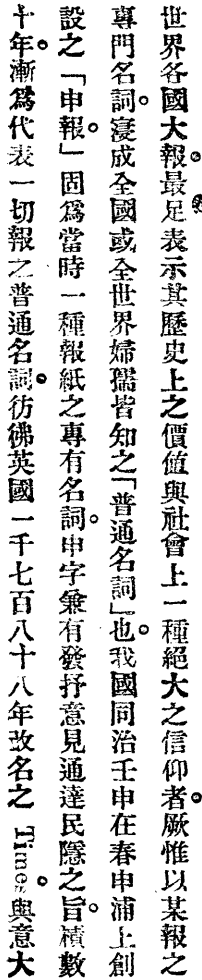 世界各國大報。最足表示其歷史上之價値與社會上一種絕大之信仰者。厥惟以某報之
專門名詞。寖成全國或全世界婦孺皆知之「普通名詞」也。我國同治壬申在春申浦上創
設之「申報。」固爲當時一種報紙之專有名詞。申字兼有發抒意見通達民隱之旨。積數
十年。漸爲代表一切報之普通名詞。彷彿英國一千七百八十八年改名之 Times。與意大